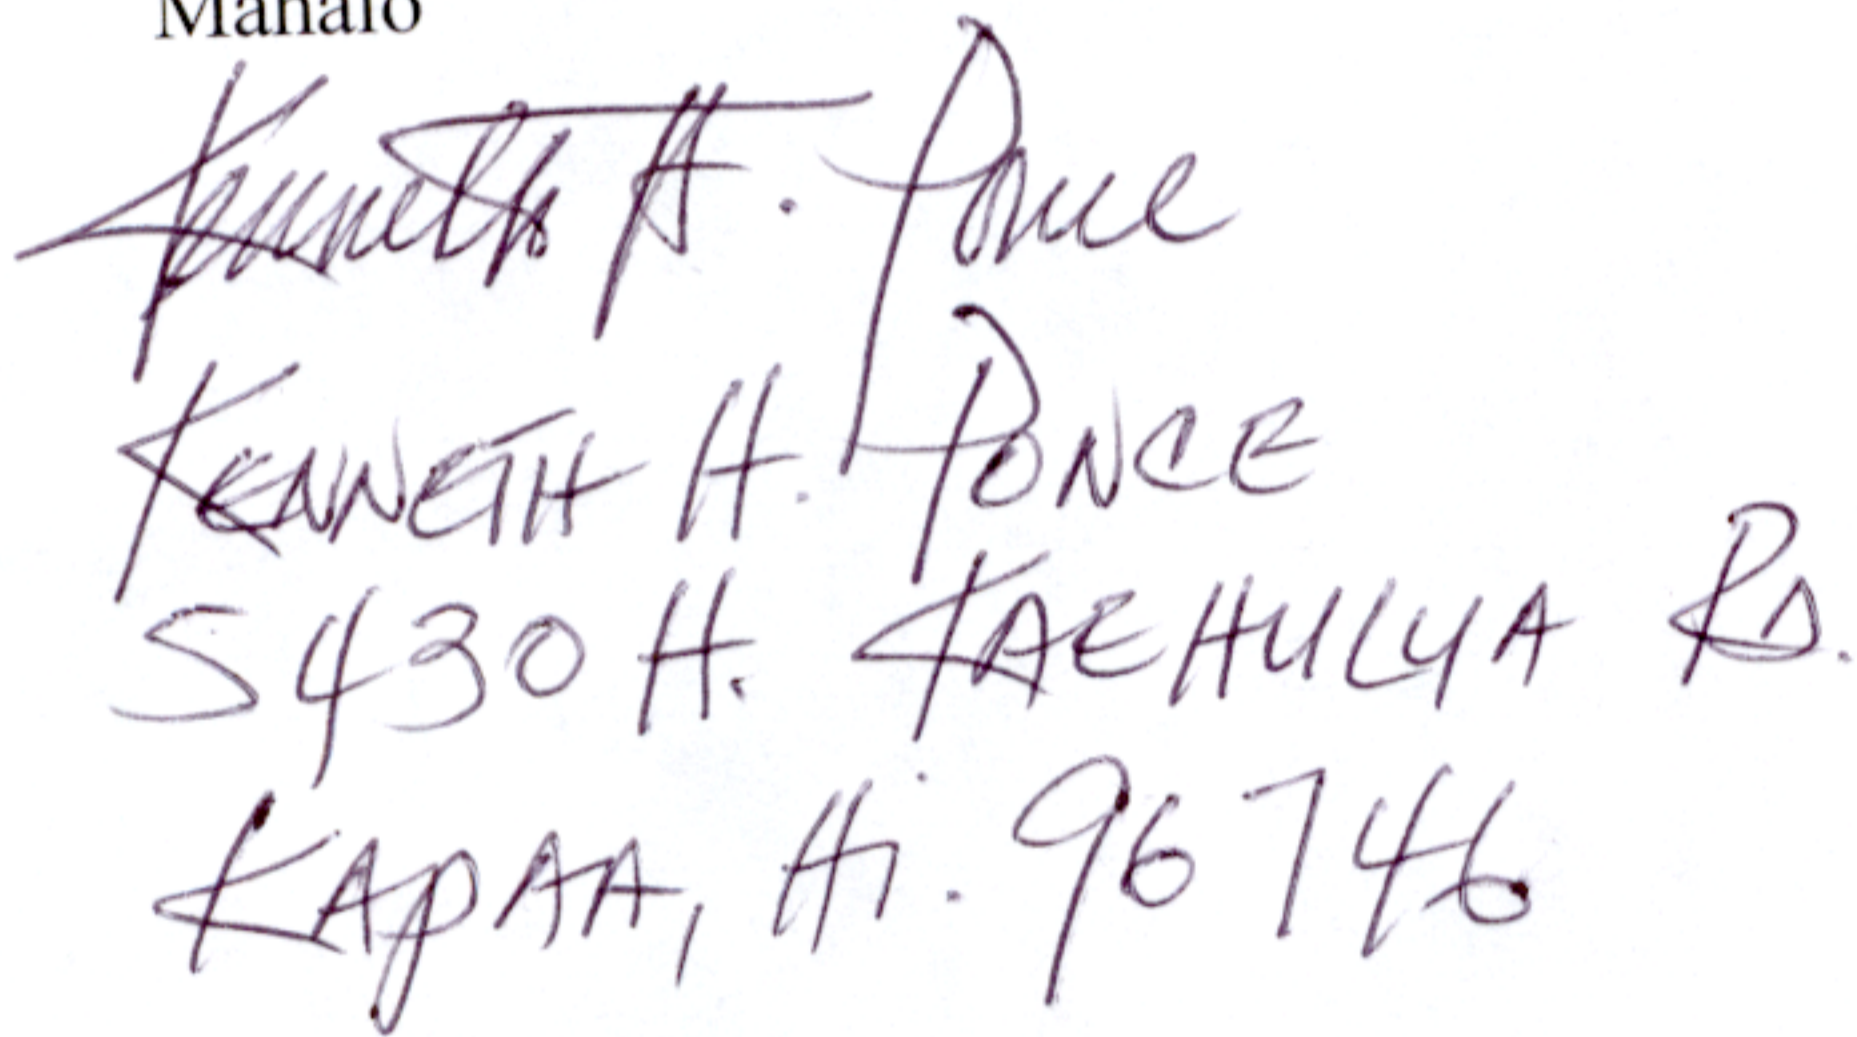 Mahalo
Kenneth H. Ponce
KENNETH H. PONCE
5430 H. KAEHULUA RD.
KAPAA, Hi. 96746